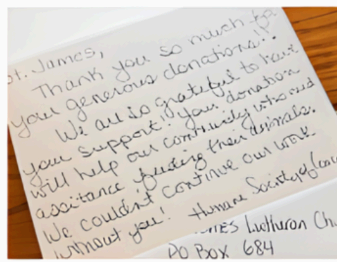 St. James,
Thank you so much for
your generous donations!!
We are so grateful to have
your support! Your donation
will help our community who need
assistance feeding their animals.
We couldn't continue our work
without you! Humane Society of
Lutheran Ch
PO Box 684